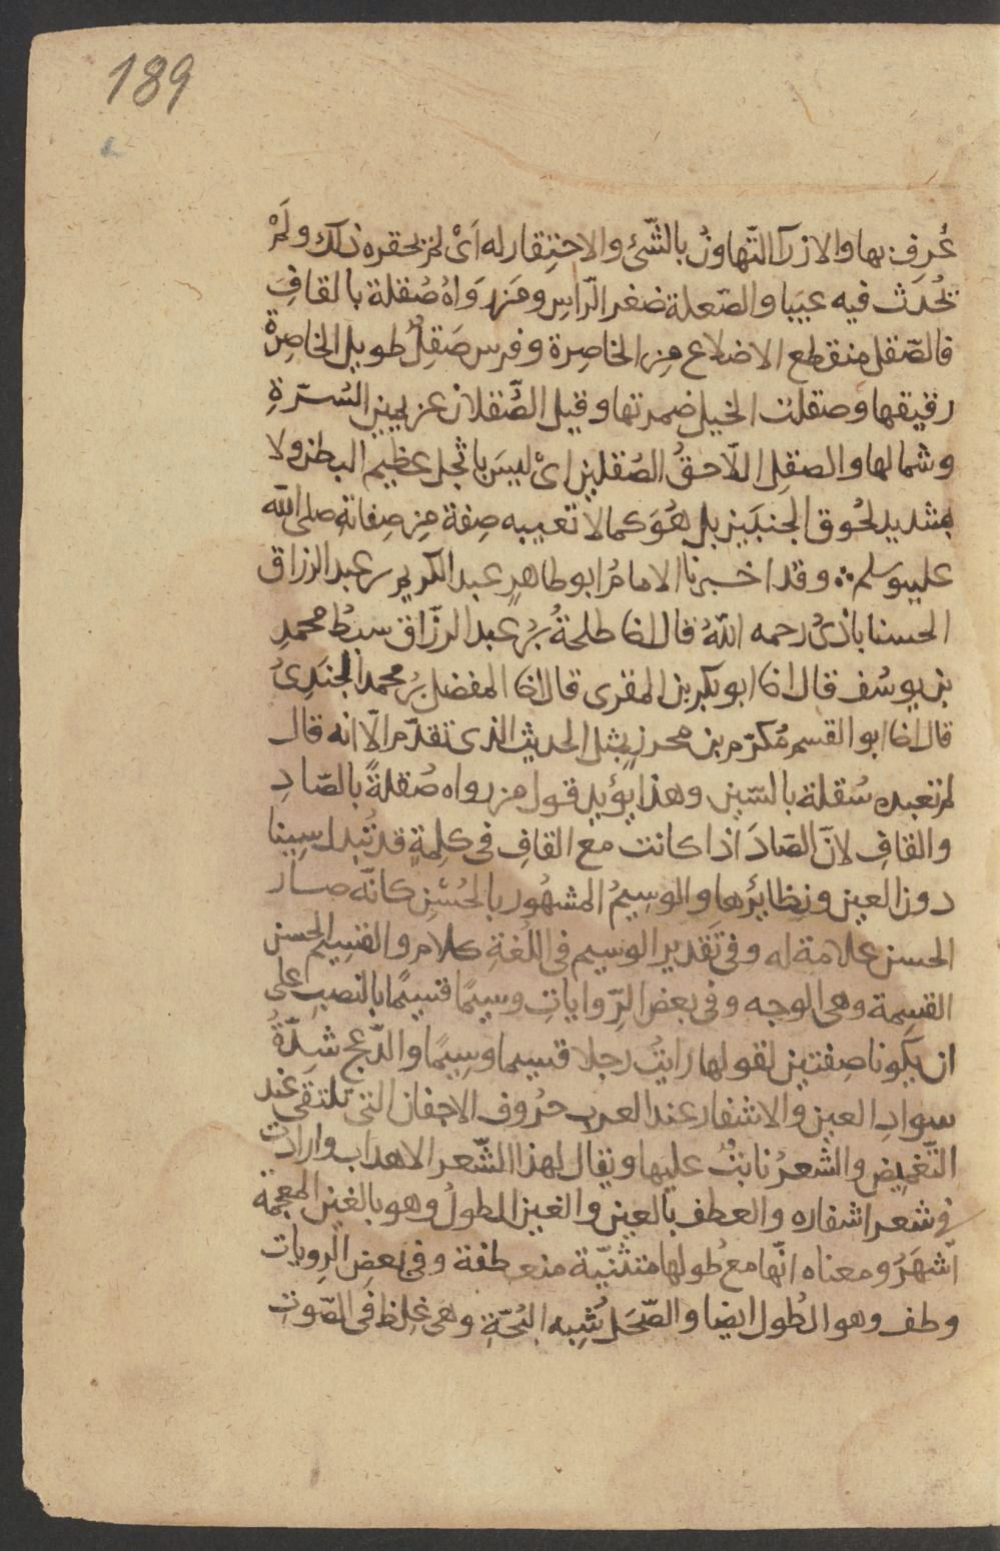 189
عُرِف بها والازرآ التّهاوُن بالشّئ والاحتِقار له اَىْ لم يحقره ذلك ولَمْ
تُحْدَث فيه عيبا والصّعلة صغر الرّاس ومَن رَوَاهُ صُقلة بالقافِ
فالصّقل منقطع الاضلاع مِن الخاصِرة وفرس صَقِلٌ طويل الخاصِرةِ
رقيقها وصقلت الخيل ضمرتها وقيل الصُّقلان عن يمين السُّرّةِ
وشمالها والصقِل اللّاحقُ الصُقلين اىْ ليسَ باثجل عظيم البطن ولا
بشديد لحُوق الجنبَين بل هُوَ كما لا تعيبه صِفة مِن صِفاته صلى الله
عليه وسلم ؞ وقد اخبرنا الامامُ ابو طاهرٍ عبد الكريم بن عبد الرزاق
الحسناباذىُ رحمه اللهُ قال انا طلحةُ بنُ عبد الرزّاق سبطُ محمدِ
بن يوسُف قال انا ابو بكر بن المقرى قال انا المفضل بنُ محمد الجنَدِىُ
قال انا ابو القسم مُكرّم بن محرزٍ بمثل الحديث الذى تقدّم الّا انه قال
لم تعبه سُقلة بالسّين وهذا يؤيد قول من رواه صُقلةً بالصّادِ
والقافِ لانّ الصّادَ اذا كانت مع القافِ فى كلِمةٍ قد تُبدل سِينا
دون العين ونظايرُها والوسِيمُ المشهُور بالحُسْنِ كانّه صار
الحسن علامة له وفى تَقدير الوسيم فى اللُغةِ كلام والقسِيم الحسن
القسِمة وهى الوجه وفى بعض الرِّواياتِ وسيمًا قسيمًا بالنصبِ على
ان يكونا صِفتين لقولها رايتُ رجلا قسيما وسِيمًا والدّعج شِدّةُ
سوادِ العين والاشفار عند العرب حرُوف الاجفان التى تلتقى عند
التّغميض والشّعرُ نابتٌ عليها ويقال لهذا الشّعر الاهداب وارادت
فى شعر اشفاره والعطف بالعين والغين الطولُ وهو بالغين المعجمة
اَشهَرُ ومعناه انّها مع طُولها متثنّية منعطفة وفى بعضِ الرِوِيات
وطف وهو الطُول ايضا والصّحَل شِبه البُحّةِ وهى غِلظ فى الصّوتِ